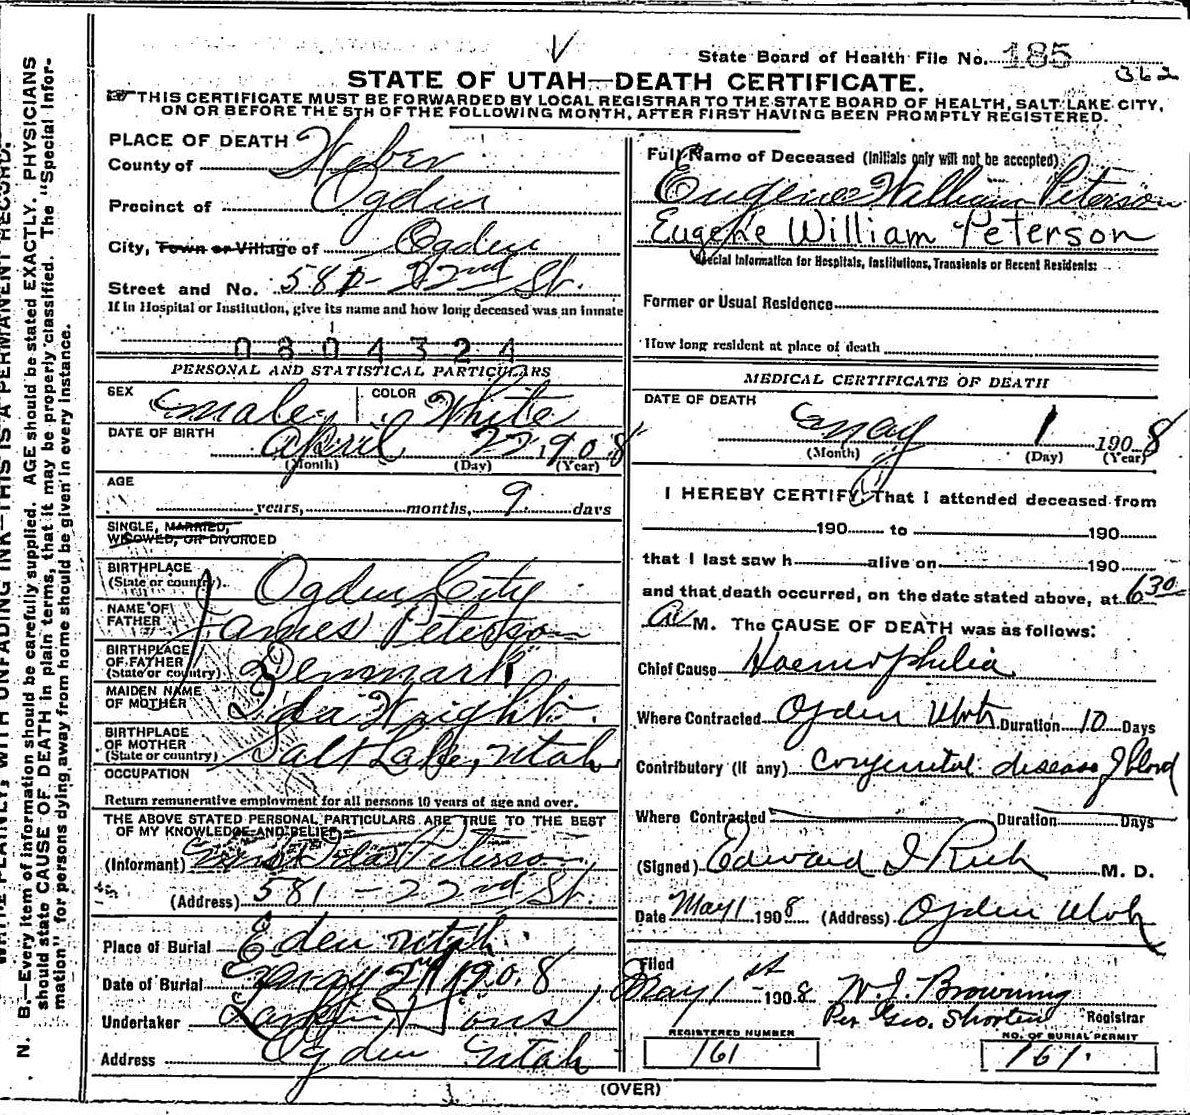 State Board of Health File No. 185
362
STATE OF UTAH—DEATH CERTIFICATE.
THIS CERTIFICATE MUST BE FORWARDED BY LOCAL REGISTRAR TO THE STATE BOARD OF HEALTH, SALT LAKE CITY,
ON OR BEFORE THE 5TH OF THE FOLLOWING MONTH, AFTER FIRST HAVING BEEN PROMPTLY REGISTERED.
PLACE OF DEATH
County of Weber
Precinct of Ogden
City, Town or Village of Ogden
Street and No. 581 - 22nd St.
If in Hospital or Institution, give its name and how long deceased was an inmate
0804324
PERSONAL AND STATISTICAL PARTICULARS
SEX male COLOR White
DATE OF BIRTH April 22, 1908
(Month) (Day) (Year)
AGE
years, months, 9 days
SINGLE, MARRIED,
WIDOWED, OR DIVORCED
BIRTHPLACE
(State or country) Ogden City
NAME OF
FATHER James Peterson
BIRTHPLACE
OF FATHER
(State or country) Denmark
MAIDEN NAME
OF MOTHER Ida Wright
BIRTHPLACE
OF MOTHER
(State or country) Salt Lake, Utah
OCCUPATION
Return remunerative employment for all persons 10 years of age and over.
THE ABOVE STATED PERSONAL PARTICULARS ARE TRUE TO THE BEST
OF MY KNOWLEDGE AND BELIEF
(Informant) Peterson
(Address) 581 - 22nd St.
Place of Burial Eden Utah
Date of Burial May 2nd 1908
Undertaker Larkin & Sons
Address Ogden Utah
Full Name of Deceased (Initials only will not be accepted)
Eugene William Peterson
Eugene William Peterson
Special Information for Hospitals, Institutions, Transients or Recent Residents:
Former or Usual Residence
How long resident at place of death
MEDICAL CERTIFICATE OF DEATH
DATE OF DEATH
May 1 1908
(Month) (Day) (Year)
I HEREBY CERTIFY, That I attended deceased from
190 to 190
that I last saw h alive on 190
and that death occurred, on the date stated above, at 6 30
A M. The CAUSE OF DEATH was as follows:
Chief Cause Haemophilia
Where Contracted Ogden Utah Duration 10 Days
Contributory (if any) Congenital disease of blood
Where Contracted Duration Days
(Signed) Edward I Rich M. D.
Date May 1 1908 (Address) Ogden Utah
Filed
May 1st 1908 W. J. Browning
Per Geo. Shorten Registrar
REGISTERED NUMBER
161
NO. OF BURIAL PERMIT
161.
(OVER)
WRITE PLAINLY, WITH UNFADING INK—THIS IS A PERMANENT RECORD.
N. B.—Every item of information should be carefully supplied. AGE should be stated EXACTLY. PHYSICIANS
should state CAUSE OF DEATH in plain terms, that it may be properly classified. The "Special Infor-
mation" for persons dying away from home should be given in every instance.